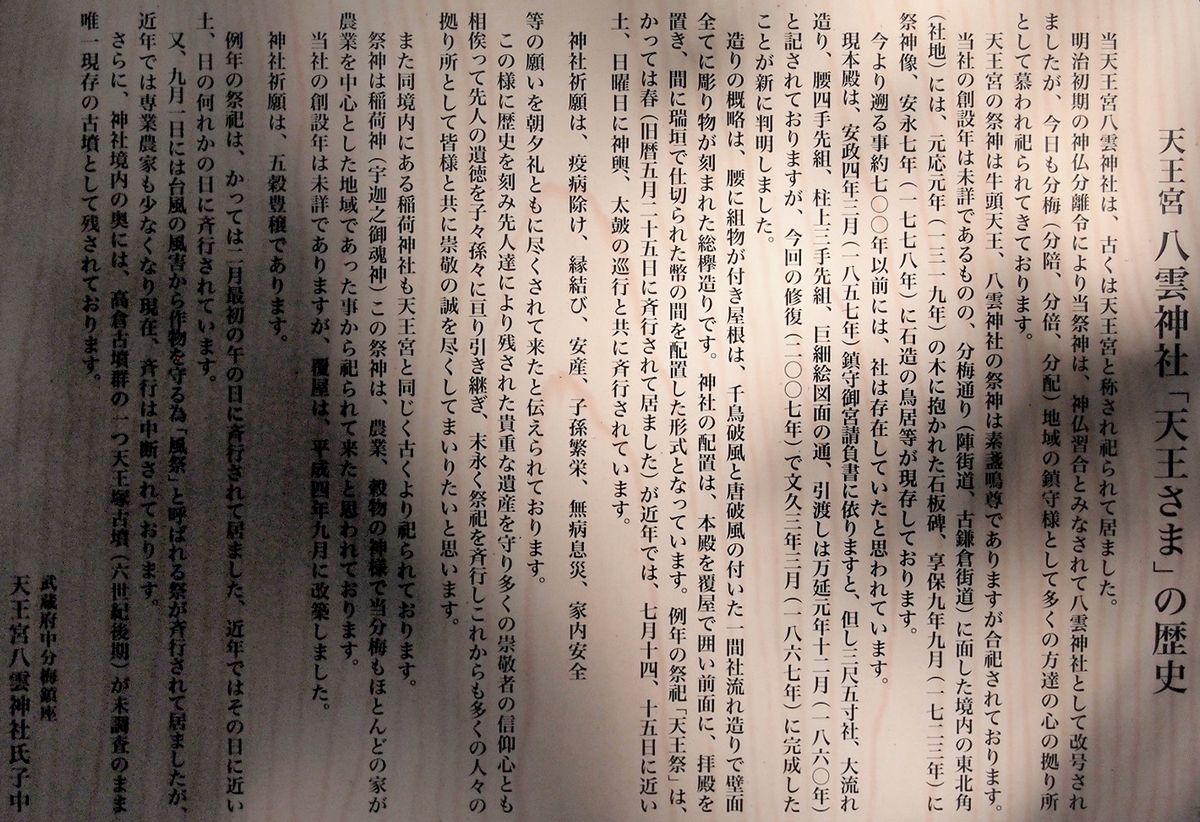 天王宮 八雲神社「天王さま」の歴史
当天王宮八雲神社は、古くは天王宮と称され祀られて居ました。
明治初期の神仏分離令により当祭神は、神仏習合とみなされて八雲神社として改号され
ましたが、今日も分梅(分陪、分倍、分配)地域の鎮守様として多くの方達の心の拠り所
として慕われ祀られてきております。
天王宮の祭神は牛頭天王、八雲神社の祭神は素盞鳴尊でありますが合祀されております。
当社の創設年は未詳であるものの、分梅通り(陣街道、古鎌倉街道)に面した境内の東北角
(社地)には、元応元年(一三一九年)の木に抱かれた石板碑、享保九年九月(一七二三年)に
祭神像、安永七年(一七七八年)に石造の鳥居等が現存しております。
今より遡る事約七〇〇年以前には、社は存在していたと思われています。
現本殿は、安政四年三月(一八五七年)鎮守御宮請負書に依りますと、但し三尺五寸社、大流れ
造り、腰四手先組、柱上三手先組、巨細絵図面の通、引渡しは万延元年十二月(一八六〇年)
と記されておりますが、今回の修復(二〇〇七年)で文久三年三月(一八六七年)に完成した
ことが新に判明しました。
造りの概略は、腰に組物が付き屋根は、千鳥破風と唐破風の付いた一間社流れ造りで壁面
全てに彫り物が刻まれた総欅造りです。神社の配置は、本殿を覆屋で囲い前面に、拝殿を
置き、間に瑞垣で仕切られた幣の間を配置した形式となっています。例年の祭祀「天王祭」は、
かっては春(旧暦五月二十五日に斉行されて居ました)が近年では、七月十四、十五日に近い
土、日曜日に神輿、太皷の巡行と共に斉行されています。
神社祈願は、疫病除け、縁結び、安産、子孫繁栄、無病息災、家内安全
等の願いを朝夕礼ともに尽くされて来たと伝えられております。
この様に歴史を刻み先人達により残された貴重な遺産を守り多くの崇敬者の信仰心とも
相俟って先人の遺徳を子々孫々に亘り引き継ぎ、末永く祭祀を斉行しこれからも多くの人々の
拠り所として皆様と共に崇敬の誠を尽くしてまいりたいと思います。
また同境内にある稲荷神社も天王宮と同じく古くより祀られております。
祭神は稲荷神(宇迦之御魂神)この祭神は、農業、穀物の神様で当分梅もほとんどの家が
農業を中心とした地域であった事から祀られて来たと思われております。
当社の創設年は未詳でありますが、覆屋は、平成四年九月に改築しました。
神社祈願は、五穀豊穣であります。
例年の祭祀は、かっては二月最初の午の日に斉行されて居ました、近年ではその日に近い
土、日の何れかの日に斉行されています。
又、九月一日には台風の風害から作物を守る為「風祭」と呼ばれる祭が斉行されて居ましたが、
近年では専業農家も少なくなり現在、斉行は中断されております。
さらに、神社境内の奥には、高倉古墳群の一つ天王塚古墳(六世紀後期)が未調査のまま
唯一現存の古墳として残されております。
武蔵府中分梅鎮座
天王宮八雲神社氏子中